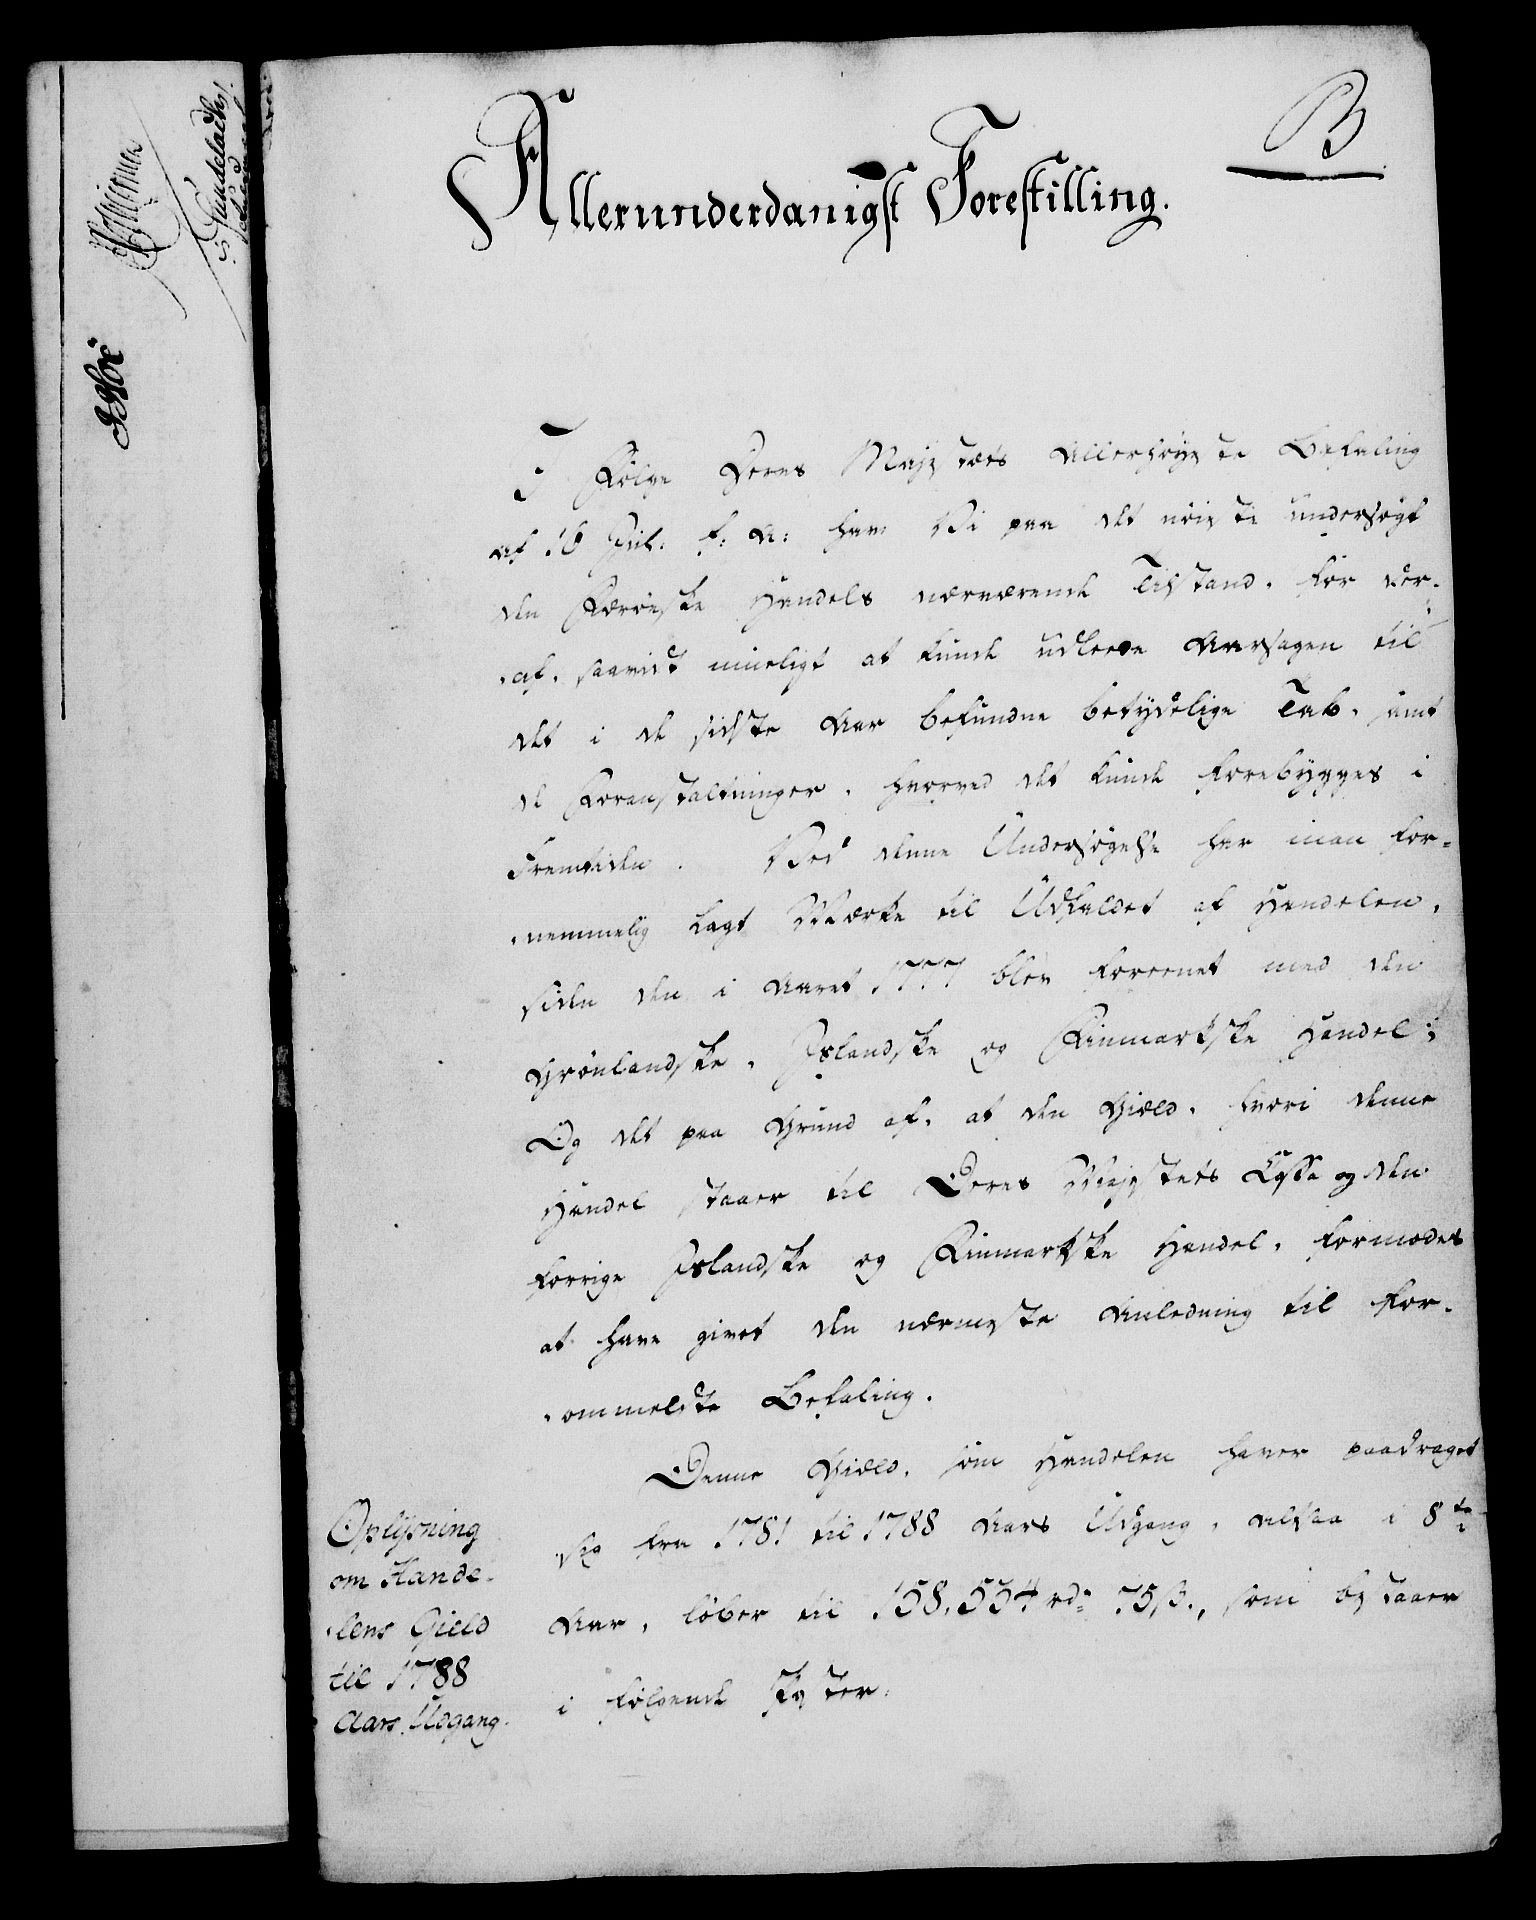 B
Allerunderdanigst Forestilling.
I Følge Deres Majestæts Allerhøyeste Befaling
af 16 Jul. f: A: have Vi paa det nøieste undersøgt
den Færøeske Handels nærværende Tilstand, for der-
af, saavidt mueligt at kunde udleede Aarsagen til
det i de sidste Aar befundne betydelige Tab, samt
de Foranstaltninger, hvorved det kunde forebygges i
Fremtiden. Ved denne Undersøgelse har man for-
nemmelig lagt Mærke til Udfaldet af Handelen,
siden den i Aaret 1777 blev foreenet med den
Grønlandske, Islandske og Finmarkske Handel;
Og det paa Grund af, at den Gield, hvori denne
Handel staaer til Deres Majestæts Cassa og den
forrige Islandske og Finmarkske Handel, formodes
at have givet den nærmeste Anledning til for-
ommeldte Befaling.
Denne Gield, som Handelen haver paadraget
sig fra 1781 til 1788 Aars Udgang, altsaa i 8te
Aar, løber til 158,554 rd 75 ß., som bestaaer
i følgende Poster:
Oplysning
om Hande-
lens Gield
til 1788
Aars Udgang.